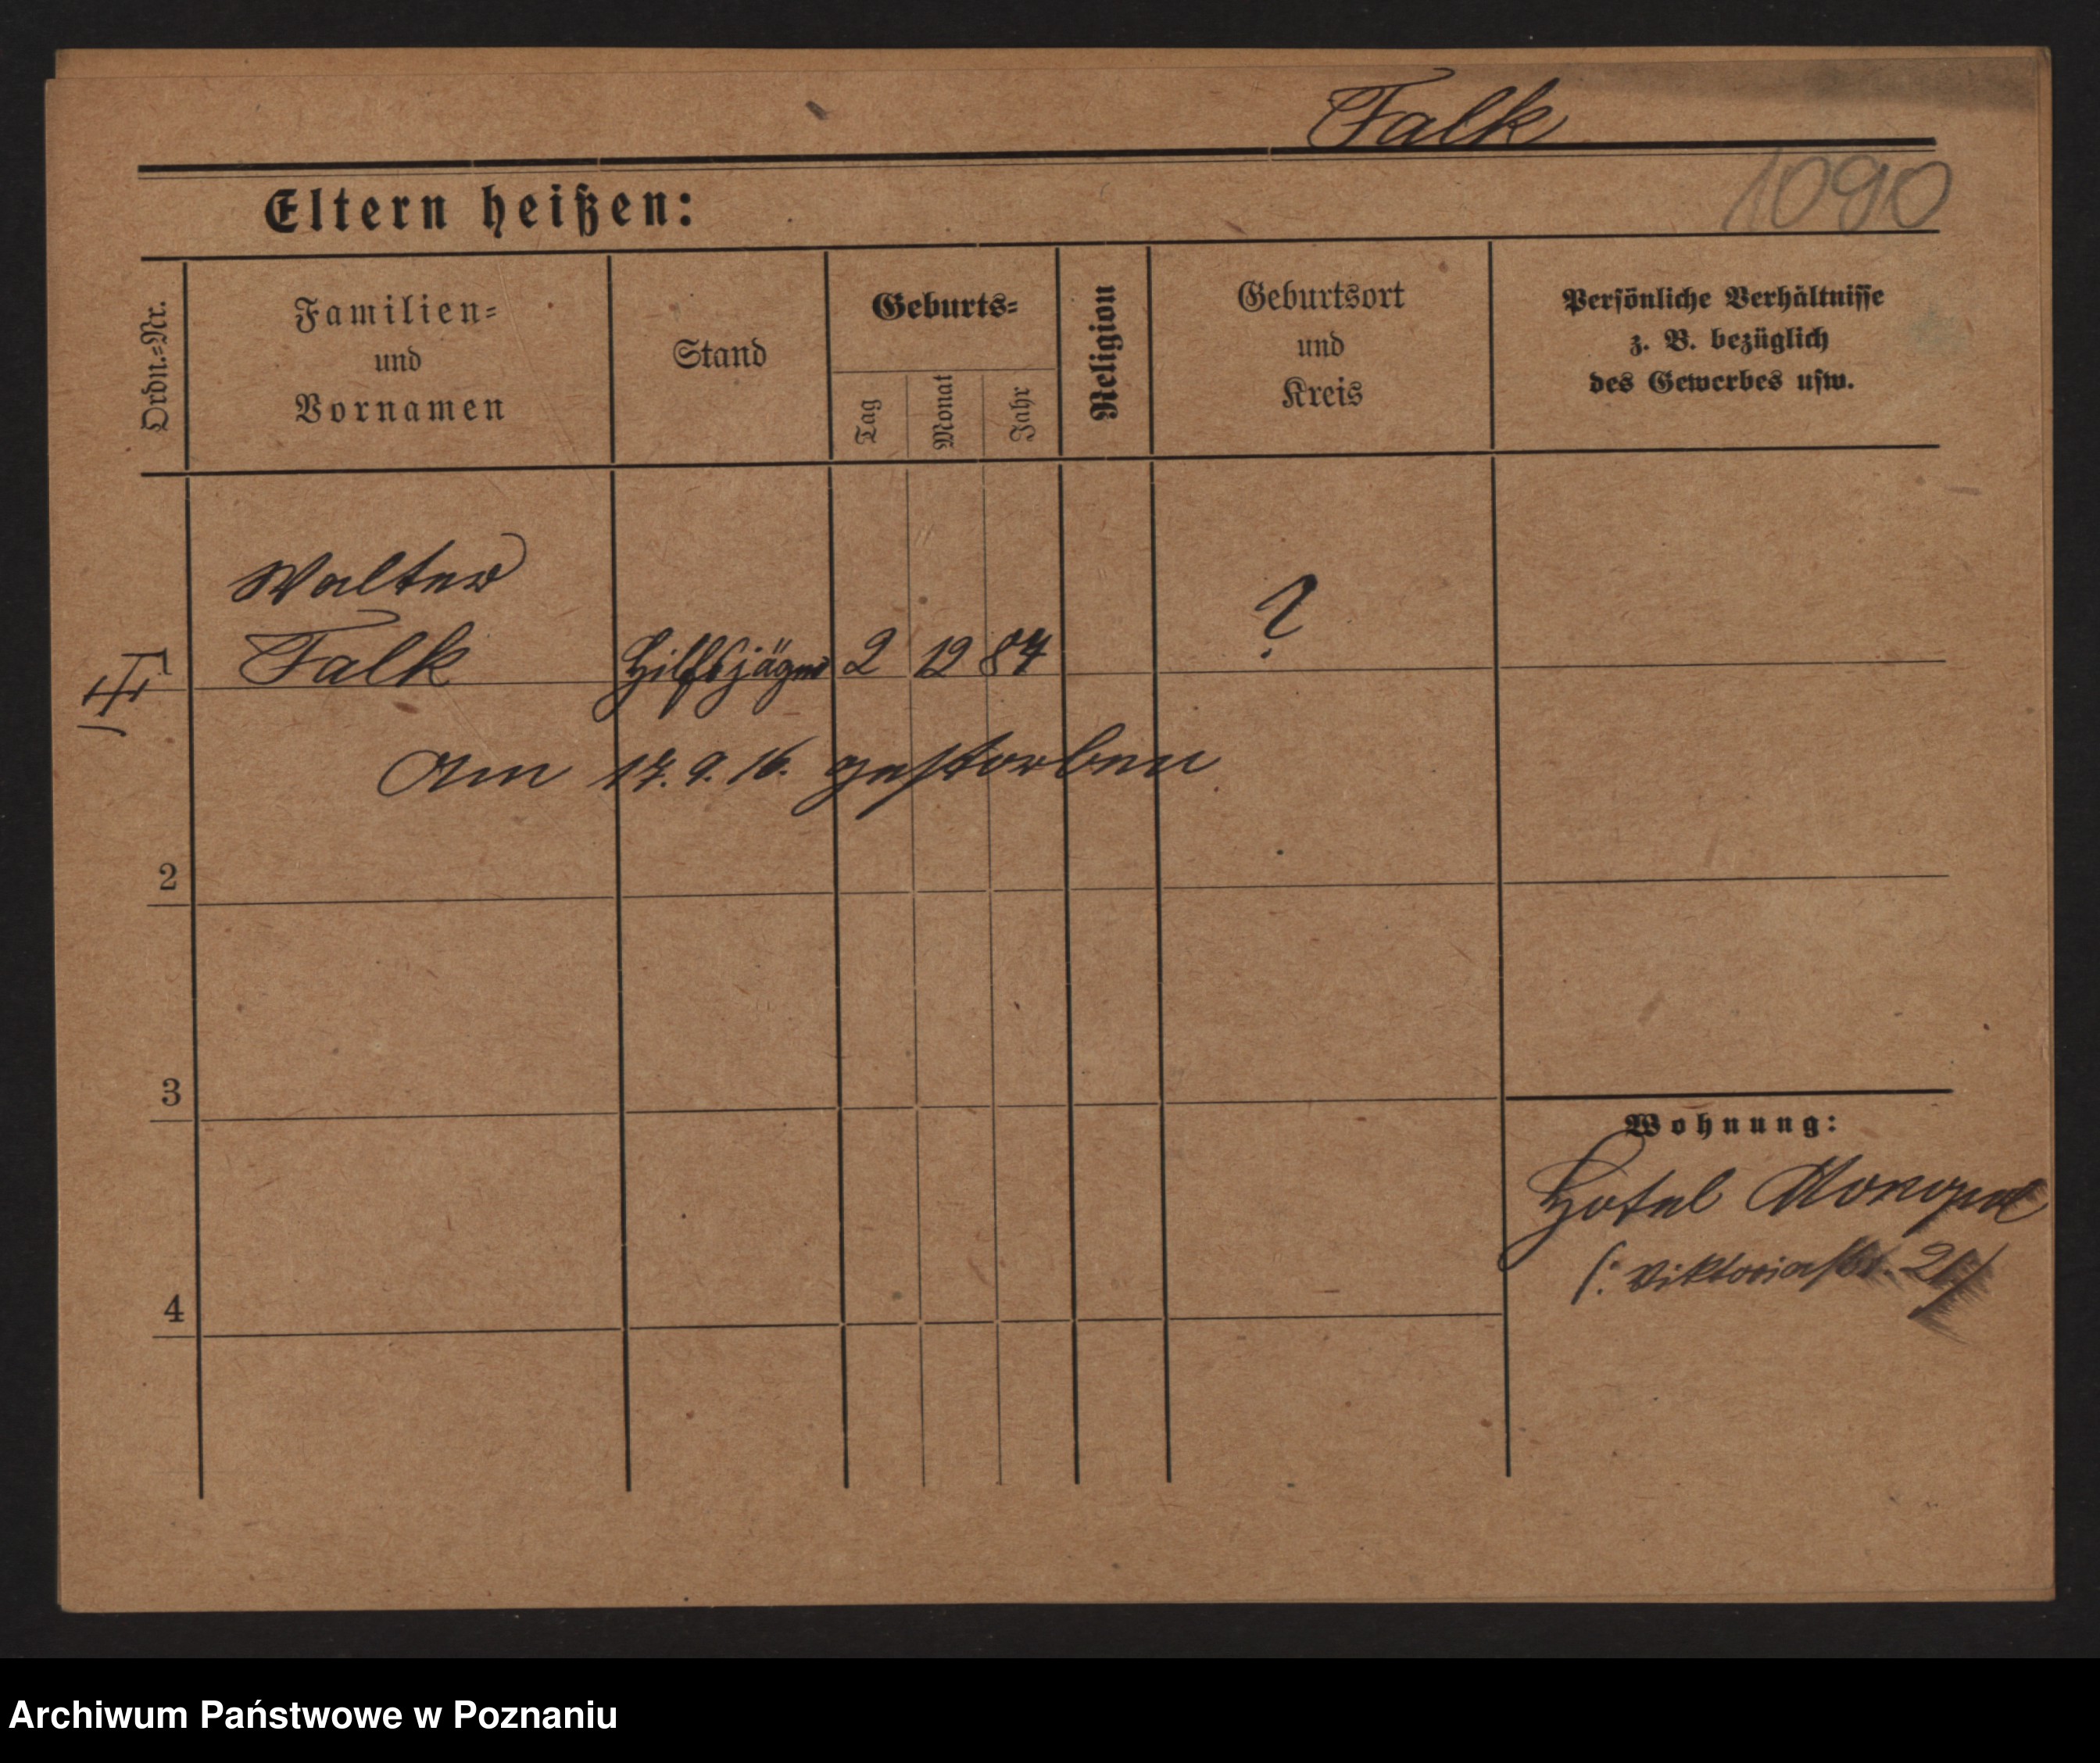 Falk
1090
Eltern heißen:
Ordn.=Nr.
Familien=
und
Vornamen
Stand
Geburts=
Tag
Monat
Jahr
Religion
Geburtsort
und
Kreis
Persönliche Verhältnisse
z. B. bezüglich
des Gewerbes usw.
Walter
1 Falk Hilfsjäger 2 12 84 ?
Am 17. 9. 16. gestorben
2
3
4
Wohnung:
Hotel Monopol
(: Viktoriastr.
Archiwum Państwowe w Poznaniu